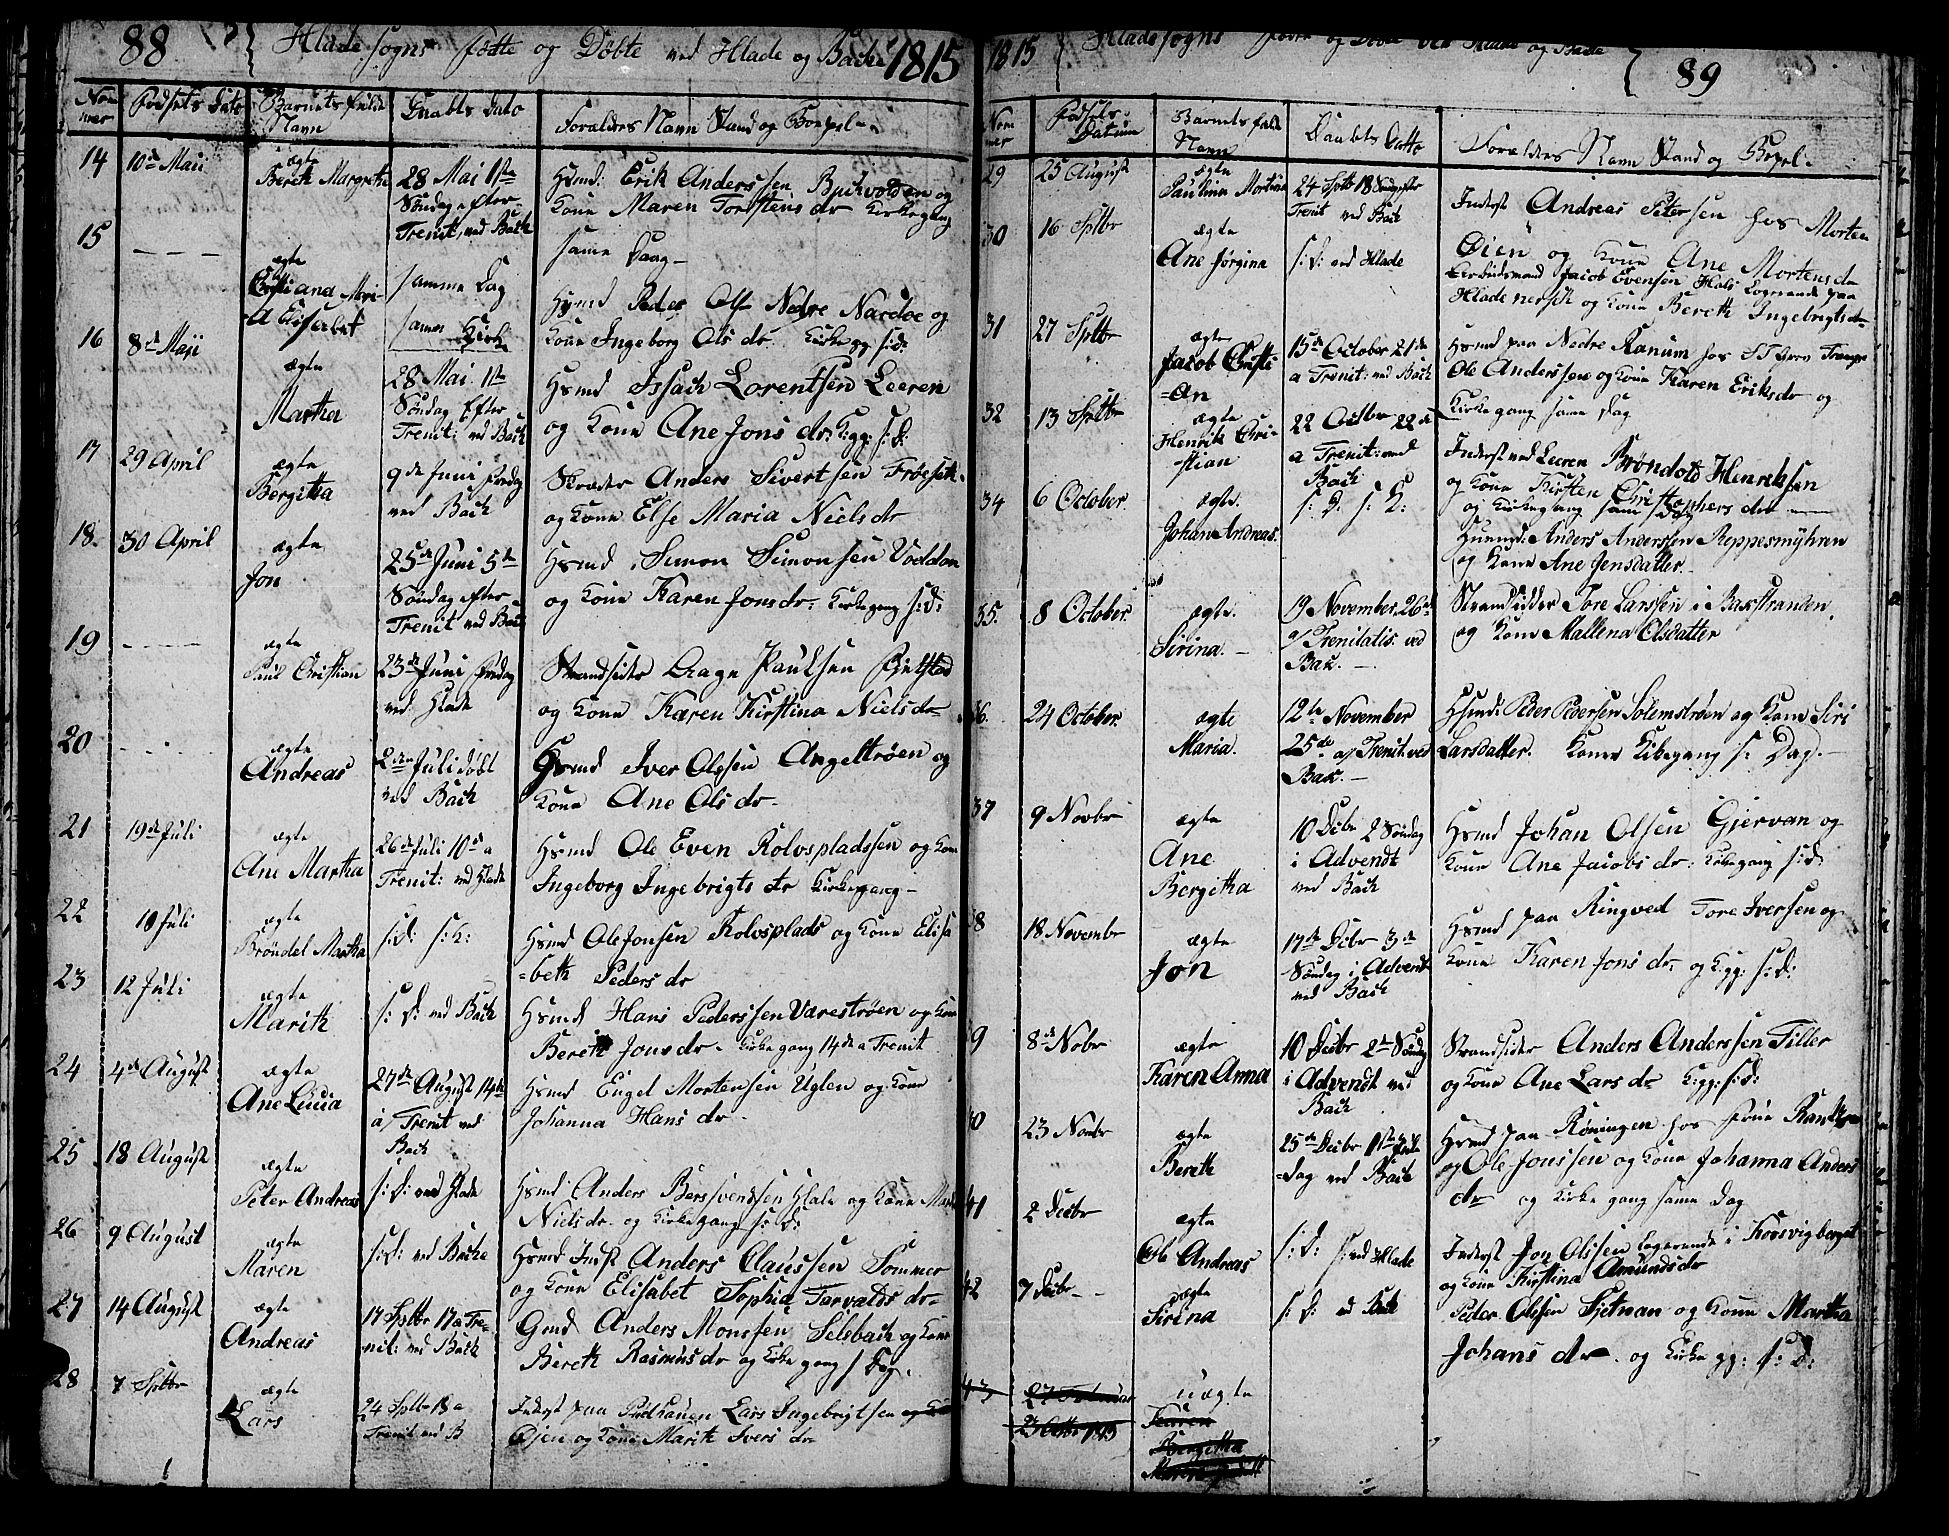 88
Hlade sogns fødte og Døbte ved Hlade og Bache 1815
Nommer
Fødsels Dato
Barnets fulde Navn
Daabs Dato
Forældres Navn Stand og Bopel
14
10de Maii
ægte
Bereth Margrethe
28 Mai 1ste
Søndag efter
Trenit, ved Bach
Hsmd: Erik Anderssen og
Kone Maren Torstens dr Kirkegang
same Daag
15
ægte
Maria Elisabet
samme Dag
samme Kirke
Hsmd Peder Ols Nedre Nardoe og
Kone Ingeborg Ols dr. Kirke gg s: d:
16
8de Maji
ægte
Martha
28 Mai 1ste
Søndag Efter
Trenit: ved Bach
Hsmd Issach Lorentsen Leeren
og Kone Ane Jons dr: Kgg: s: d:
17
29 April
ægte
Bergitha
9de Juni fredag
ved Bach
Skræder Anders Sivertsen
og Kone Else Maria Niels dr
18.
30 April
ægte
Jon
25de Juni 5te
Søndag efter
Trenit ved Bach
Hsmd Simon Simonsen Voddan
og Kone Karen Jons dr. Kirkegang s: d:
19
ægte
Paul Christian
23de Juni fredag
ved Hlade
Strandsider Aage Paulsen
og Kone Karen Kirstina Niels dr
20
ægte
Andreas
2den Juli døbt
ved Bach
Hsmd Iver Olssen Angeltrøen og
Kone Ane Ols dr.
21
19de Juli
ægte
Ane Martha
26de Juli 10de a
Trenit: ved Hlade
Hsmd Ole Even Rolvspladssen og Kone
Ingeborg Ingebrigts dr Kirkegang
22
10 Juli
ægte
Brøndel Martha
s: d: s: K:
Hsmd Ole Jonsen Rolvsplads og Kone Elisa
=beth Peders dr
23
12 Juli
ægte
Marith
s: d: ved Bach
Hsmd Hans Pederssen Varestrøen og Kone
Bereth Jons dr. Kirkegang 14de a Trenit
24
4de August
ægte
Ane Lucia
27de August 14de
a/ Trenit ved
Bach
Hsmd Engel Mortensen Uglen og Kone
Johanna Hans dr
25
18 August
ægte
Peter Andreas
s: d: ved Hlade
Hsmd Anders Berssvendsen Hlade og Kone
Niels dr. og Kirkegang s: d:
26
9 August
ægte
Maren
s: d: ved Bache
Hsmd Inst Anders Claussen Sommer
og Kone Elisabet Sophia Torvalds dr
27
14 August
ægte
Andreas
17 Sptbr 17 a Tre-
nit: ved Bach
Gmd Anders Monssen Selsbach og Kone
Bereth Rasmus dr og Kirke gang s Dag.
28
7 Sptbr
ægte
Lars
24 Sptbr 18 a
Trenit ved B
Inderst paa Lars Ingebrigtsen
Øjen og Kone Marith Ivers dr
1815
Hlade sogns fødte og Døbte ved Hlade og Bache
89
Nommer
Fødsels Datum
Barnets fulde Navn
Daabets Datto
Foraldres Navn Stand og Bopel
29
25 August
ægte
Paulina Mortina
24 Sptb 18 Søndag efter
Trenit ved Bach
Inderst Andreas Petersen hos Morten
Øien og Kone Ane Mortens dr
30
16 Sptbr
ægte
Ane Jørgina
s: d: ved Hlade
Arbeidsmand Jacob Evensen Hals Logerende paa
Hlade og Kone Bereth Ingebrigts dr
31
27 Sptbr
ægte
Jacob Christi
=an
15de October 21de
a Trenit: ved Bach
Hsmd paa Nedre Ranum hos
Ole Anderssen og Kone Karen Eriks dr og
Kirkegang same Dag
32
13 Sptbr
ægte
Henrik Chri-
-stian
22 Octbr 22de
a Trenit: ved
Bach
Inderst ved Leeren Brøndold Henriksen
og Kone Kirsten Christophers dr
og Kirkegang same Dag
34
6 October.
ægte.
Johan Andreas.
s: d: s: K:
Huusmd: Anders Anderssen Reppesmyhren
og Kone Ane Jensdatter
35.
8 October.
ægte.
Sirina.
19 November. 26de
a/ Trenitatis. ved
Bak.
Strandsidder Tore Larssen i Bakstranden
og Kone Mallena Olsdatter
36.
24 October.
ægte
Maria.
12te November
25de a/ Trenit. ved
Bak.
Hsmd: Peder Pedersen Solemstrøen og Kone Siri
Larsdatter. Kones Kirkegang s: Dag.
37
9 Novbr
ægte
Ane
Bergitha
10 Decbr 2 Søndag
i Advendt
ved Bach
Hsmd Johan Olsen Gjervan og
Kone Ane Jacobs dr: Kirkegang s: d:
38
18 Novembr
ægte
Jon
17de Decbr 3de
Søndag i Advent
ved Bach
Hsmd paa Ringved Tore Iversen og
Kone Karen Jons dr. og Kgg: s: d:
39
8de Nobr
ægte
Karen Anna
10 Decbr 2de Søndag
i Advendt ved
Bach
Strandsider Anders Anderssen Tiller
og Kone Ane Lars dr Kgg: s: d:
40
23 Novbr
ægte
Bereth
25de Decbr 1ste Jule
-dag ved Bach
Hsmd paa Røningen hos
og Ole Jonssen og Kone Johanna Anders
dr og Kirke gang same Dag
41
2 Decbr
ægte
Ole Andreas
s: d: ved Hlade
Inderst Jon Olssen Logerende i Korsvigberget
og Kone Kirstina Amunds dr
42
7 Decbr
ægte
Sirina
s: d: ved Bach
Peder Olssen Sjetnan og Kone Martha
Johans dr. og Kirke gg: s: d:
43
uægte
Karen
Bergitha